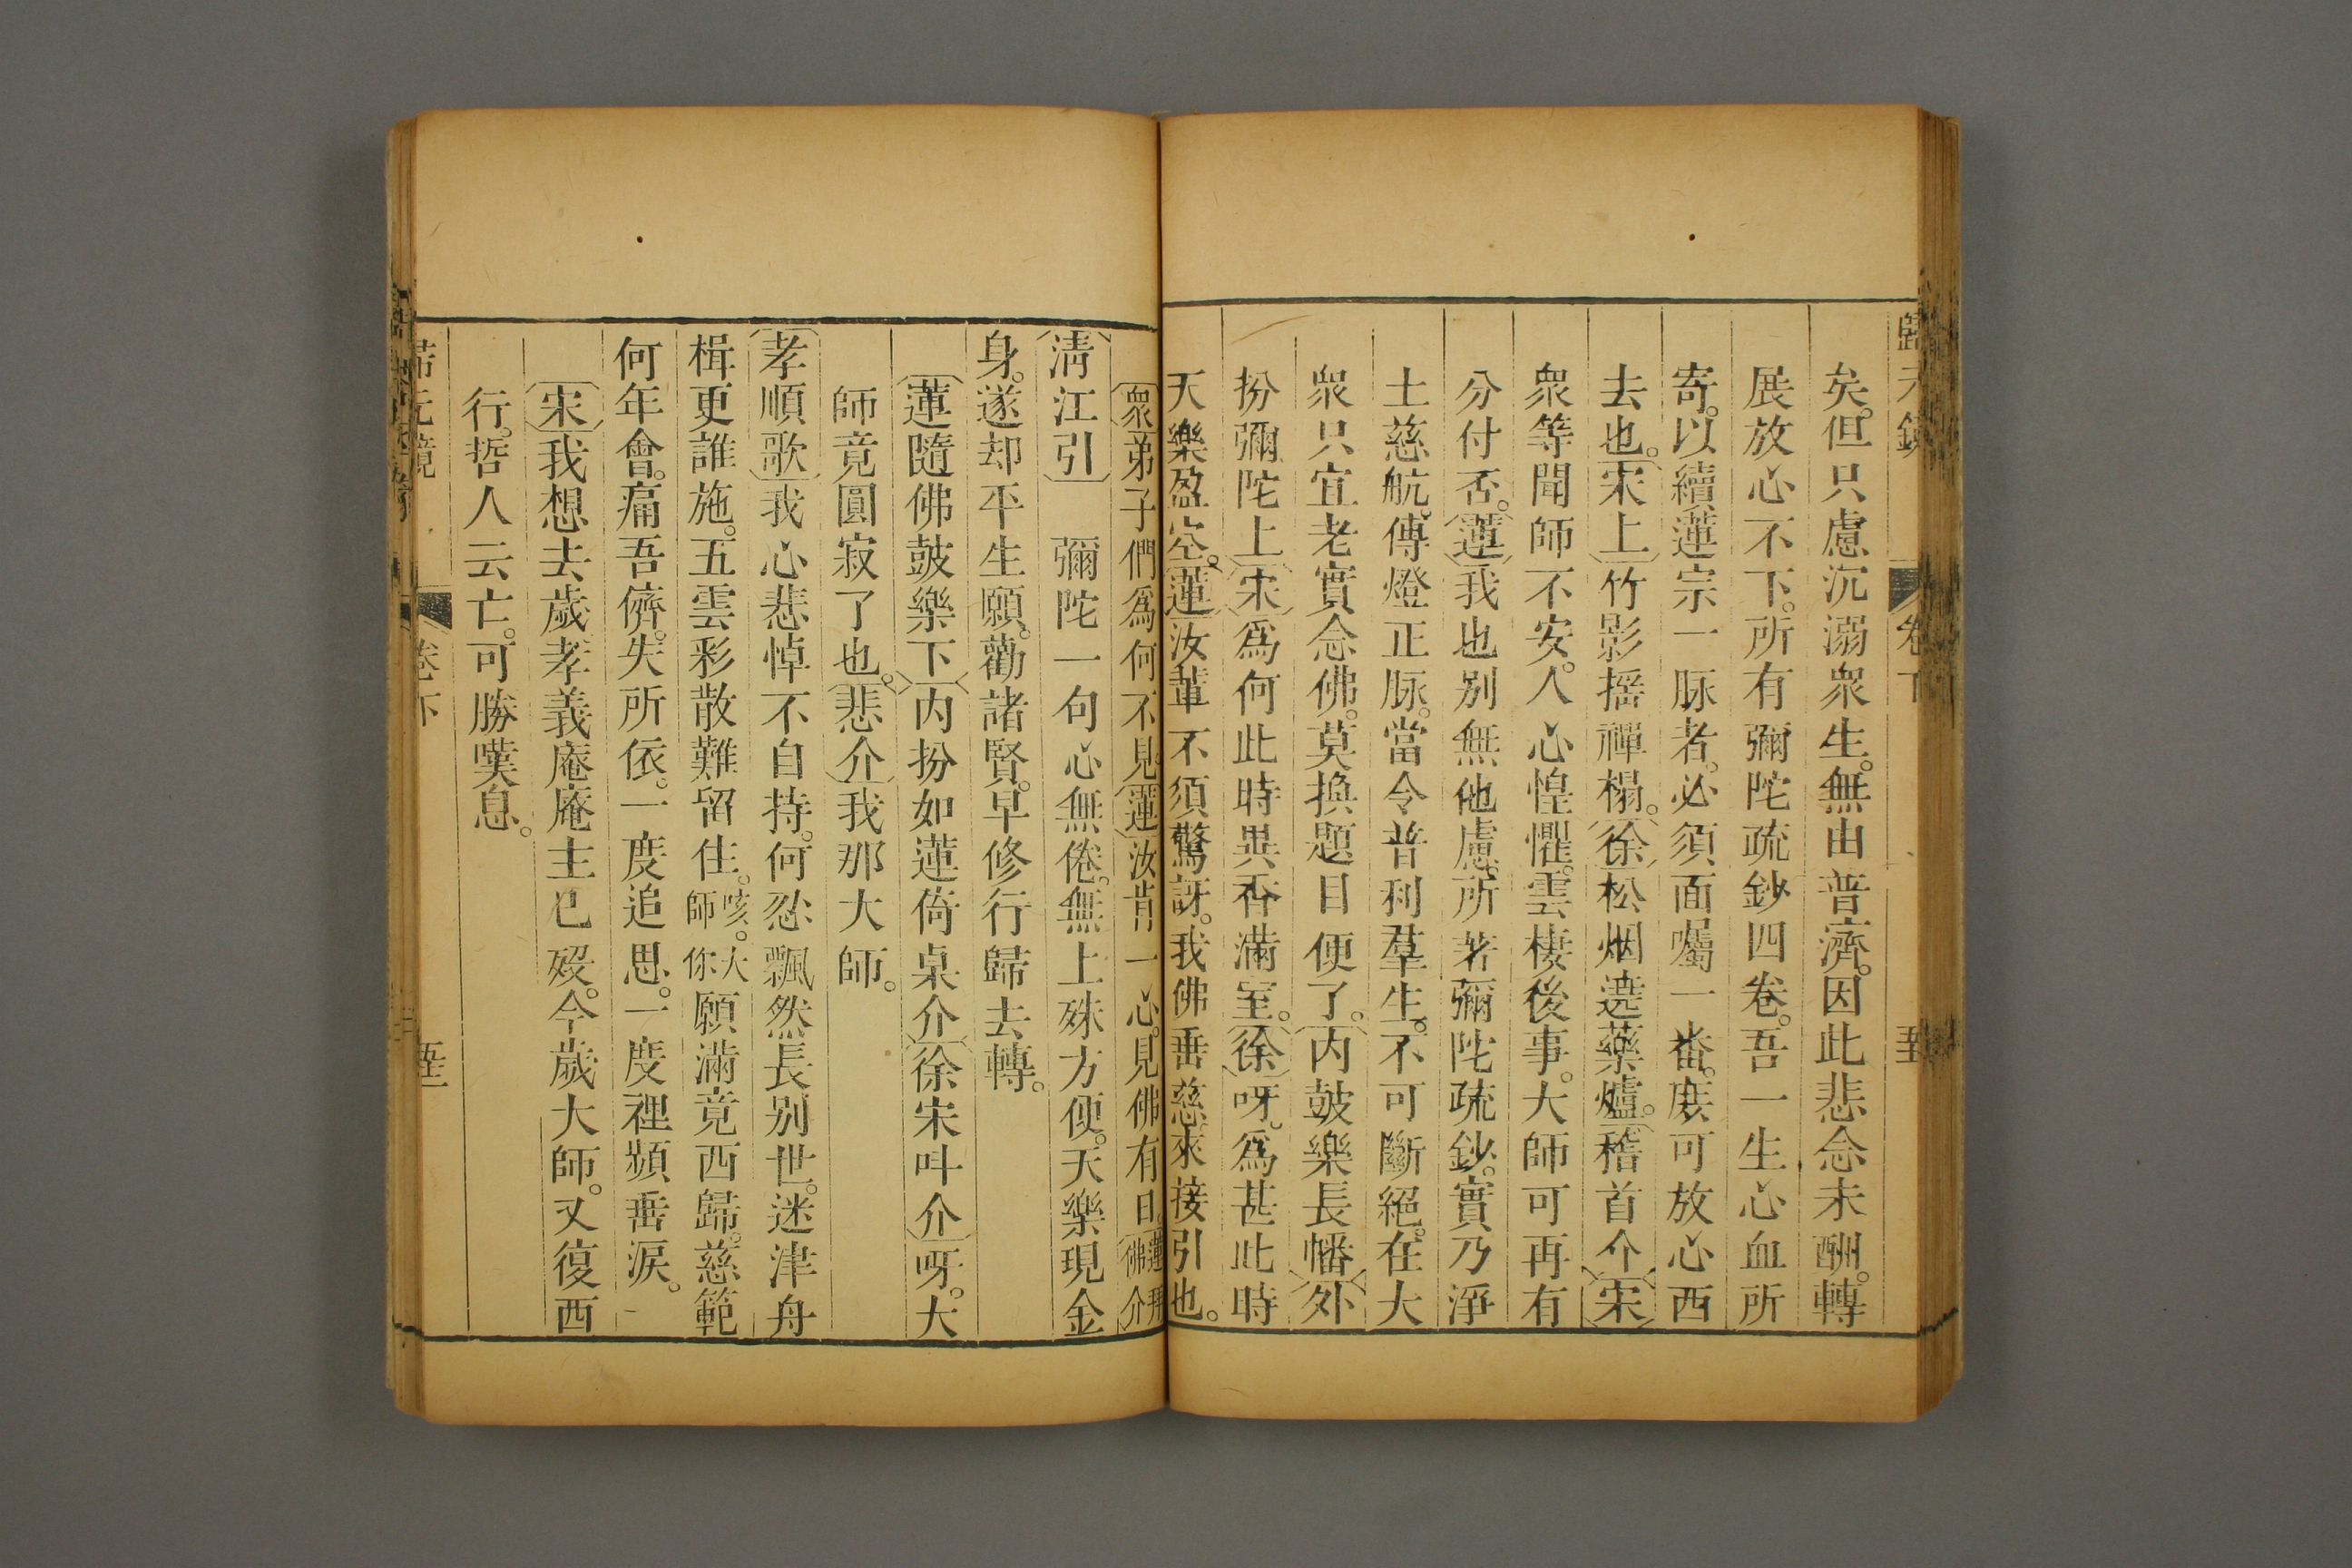 歸元鏡 卷下
矣。但只慮沉溺衆生。無由普濟。因此悲念未酬。轉
展放心不下。所有彌陀疏鈔四卷。吾一生心血所
寄。以續蓮宗一脉者。必須面囑一番。庶可放心西
去也。〔宋上〕竹影搖禪榻。〔徐〕松烟遶藥爐。〔稽首介〕〔宋〕
衆等聞師不安。人心惶懼。雲棲後事。大師可再有
分付否。〔蓮〕我也別無他慮。所著彌陀疏鈔。實乃淨
土慈航。傳燈正脉。當令普利羣生。不可斷絕。在大
衆只宜老實念佛。莫換題目便了。〔内鼓樂長幡〕〔外
扮彌陀上〕〔宋〕爲何此時異香滿室。〔徐〕呀。爲甚此時
天樂盈空。〔蓮〕汝輩不須驚訝。我佛垂慈來接引也。
〔衆〕弟子們爲何不見〔蓮〕汝肯一心。見佛有日。〔蓮拜佛介〕
〔淸江引〕 彌陀一句心無倦。無上殊方便。天樂現金
身。遂却平生願。勸諸賢。早修行歸去轉。
〔蓮隨佛鼓樂下〕〔内扮如蓮倚桌介〕〔徐宋叫介〕呀。大
師竟圓寂了也。〔悲介〕我那大師。
〔孝順歌〕我心悲悼不自持。何忍飄然長別世。迷津舟
楫更誰施。五雲彩散難留住。咳。大師你願滿竟西歸。慈範
何年會。痛吾儕。失所依。一度追思。一度裡頻垂淚。
〔宋〕我想去歲孝義庵庵主已歿。今歲大師。又復西
行。哲人云亡。可勝嘆息。
歸元鏡 卷下